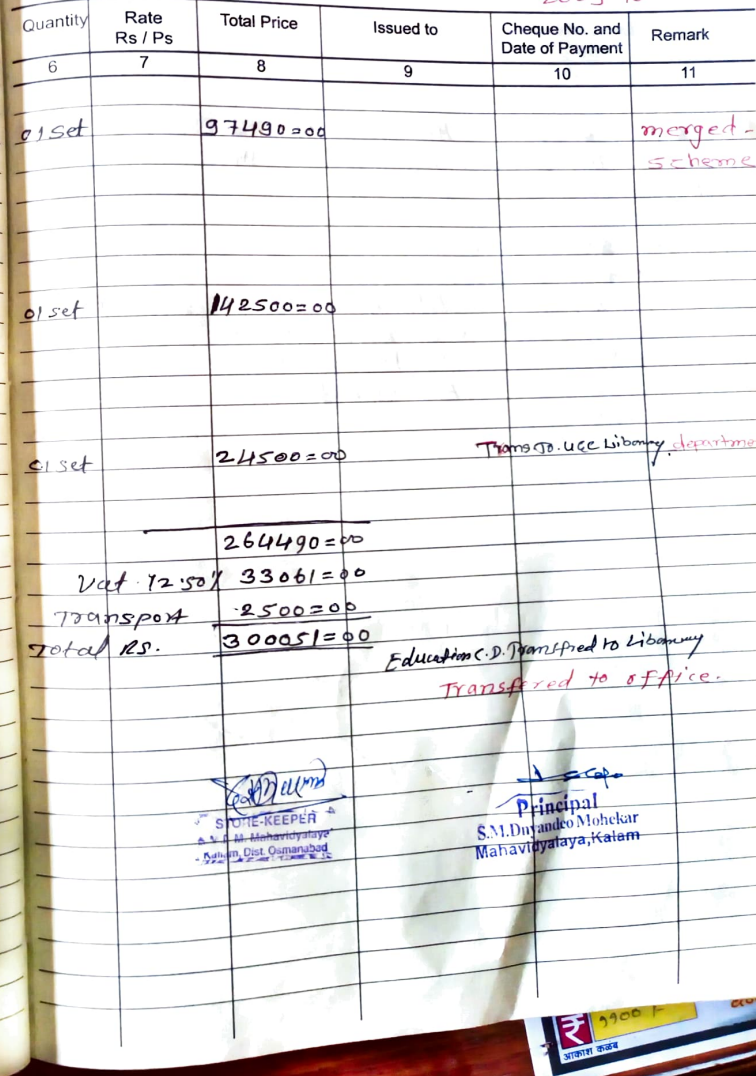 Quantity Rate Rs / Ps Total Price Issued to Cheque No. and Date of Payment Remark
6 7 8 9 10 11
01 Set 97490=00 merged-
scheme
01 set 142500=00
01 set 24500=00 Trans To. UGC Liborary, departme
264490=00
Vat 12.50% 33061=00
Transport 2500=00
Total RS. 300051=00
Education C.D. Transfred to Liborary
Transfered to office.
STORE-KEEPER
M. Mahavidyalaya
Kalam, Dist. Osmanabad
Principal
S.M.Dnyandeo Mohekar
Mahavidyalaya, Kalam
₹ 9900/-
आकाश कळब